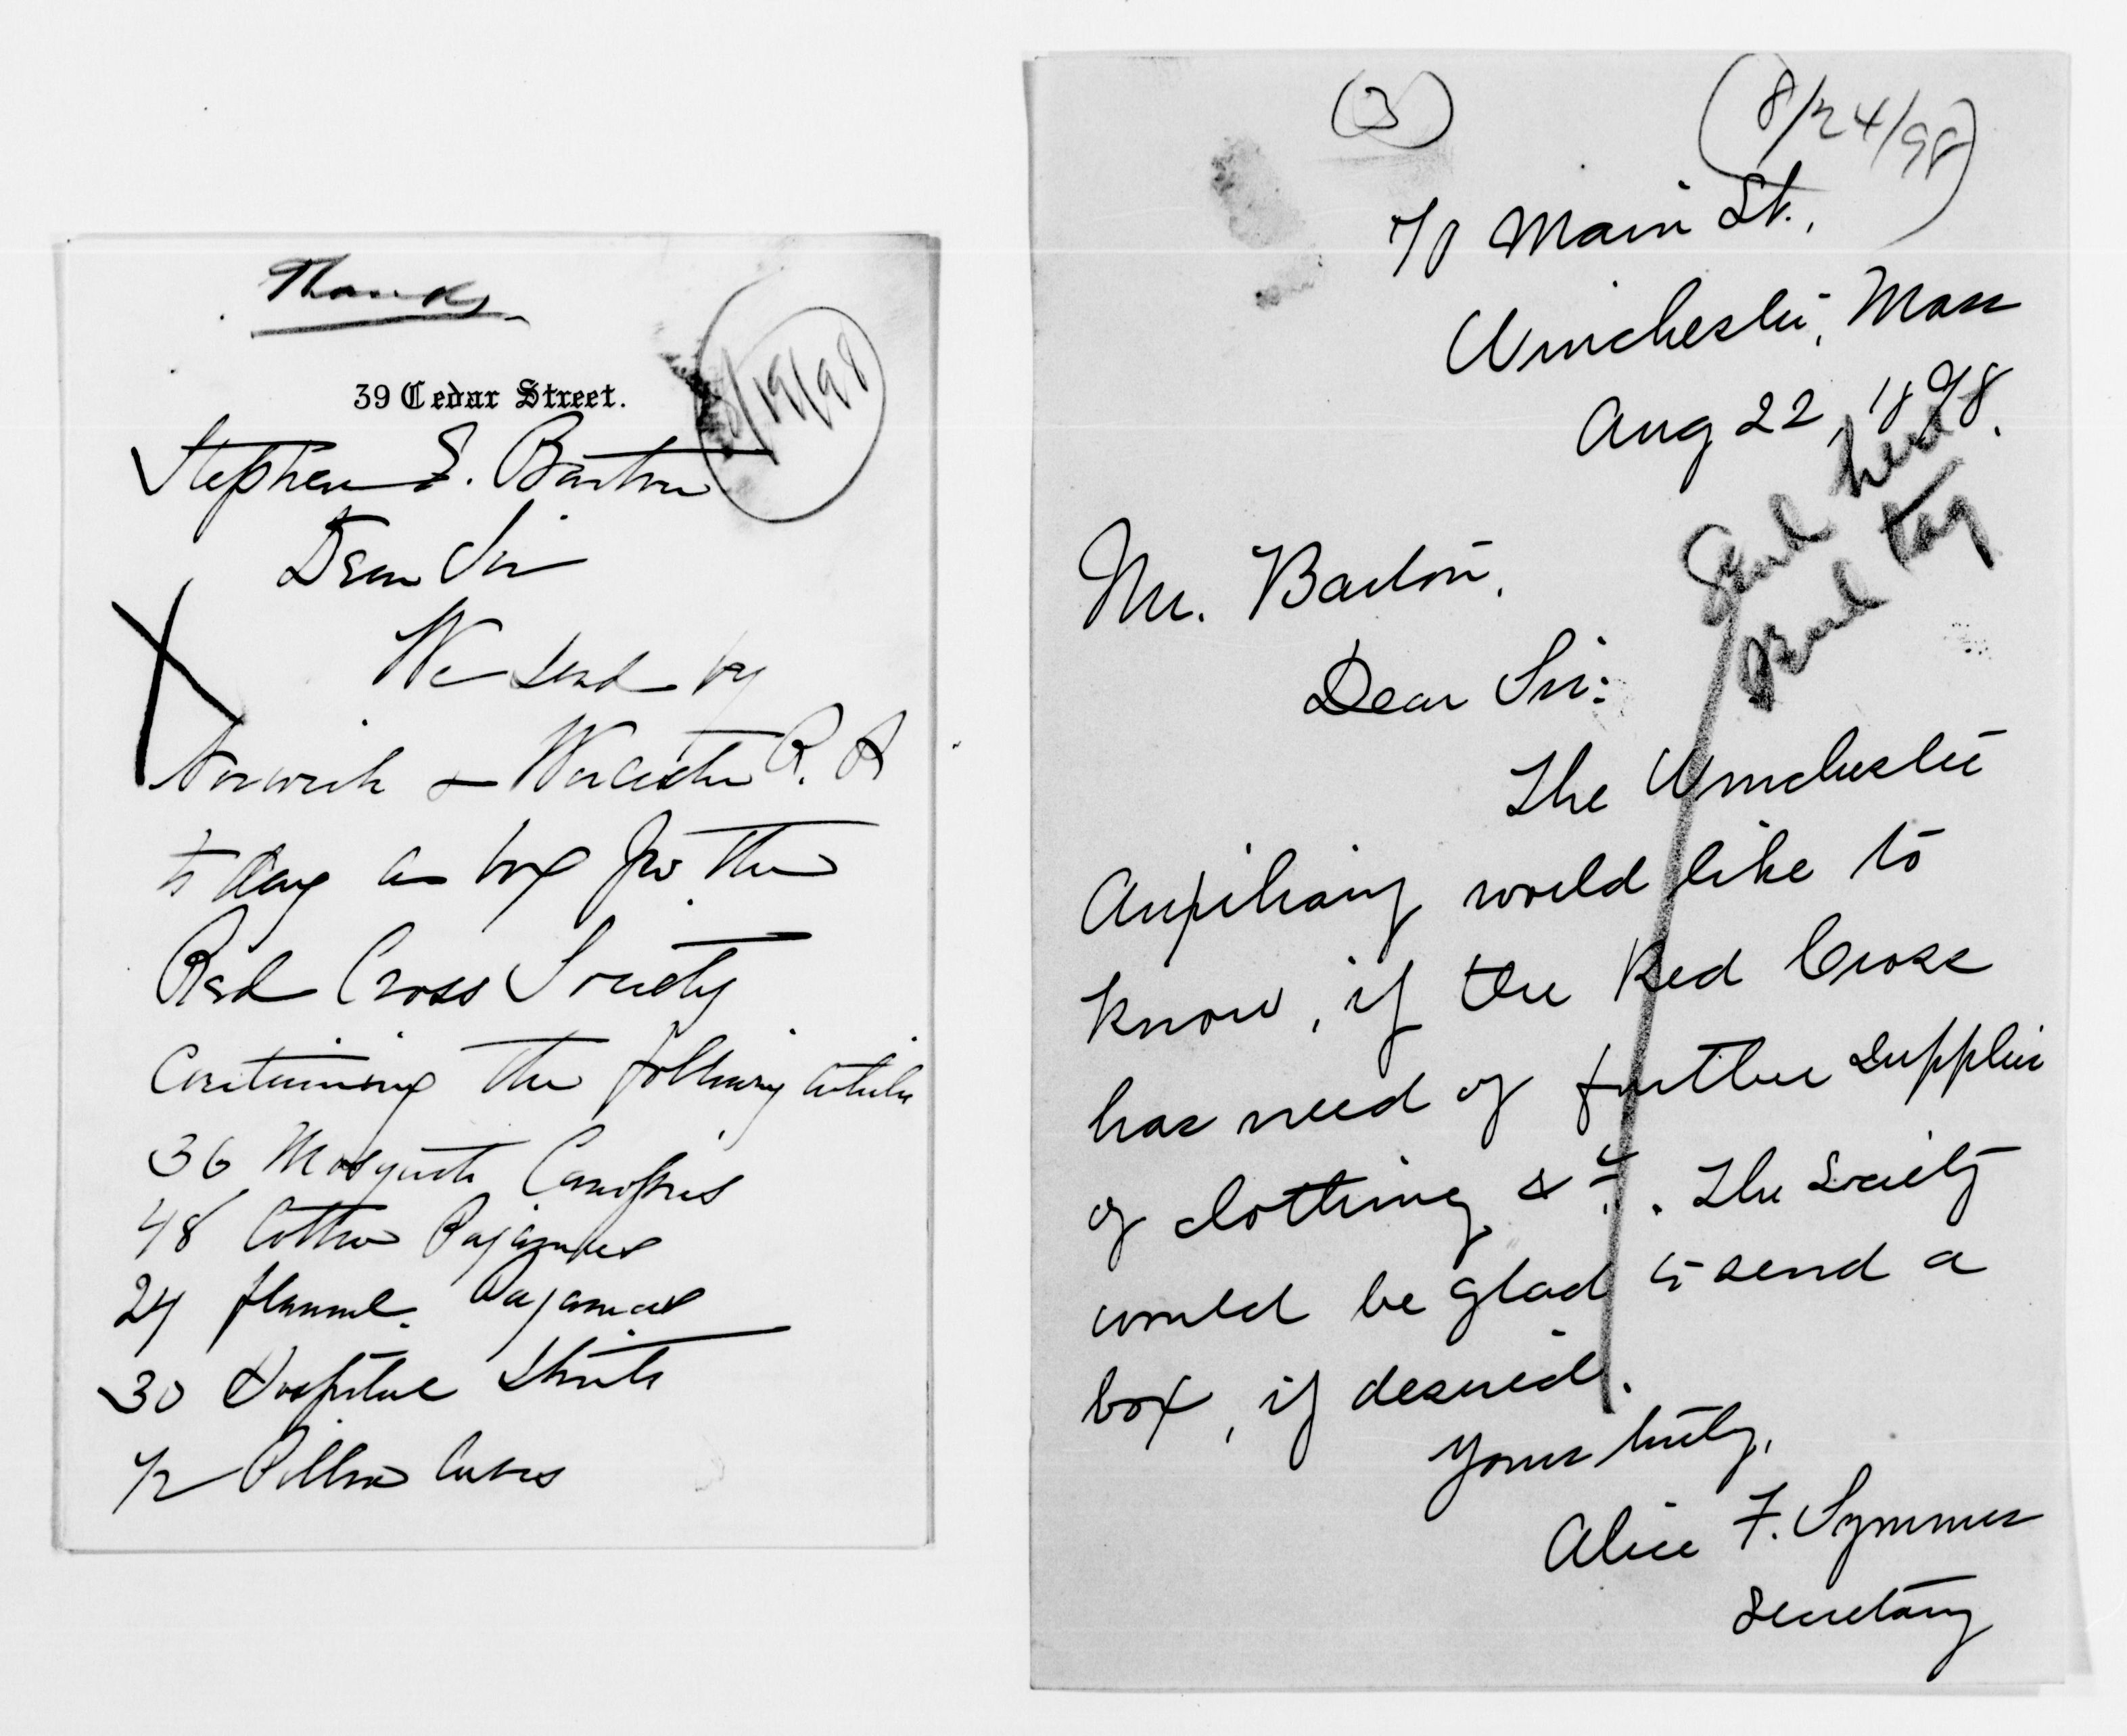 Thanks
8/19/98
39 Cedar Street.
Stephen E. Barton
Dear Sir
We send by
Norwich & Worcester R. R
to day a box for the
Red Cross Society
Containing the following articles
36 Mosquito Canopies
48 Cotton Pajamas
24 flannel Pajamas
30 Hospital Shirts
72 Pillow Cases
(3)
(8/24/98)
70 Main St.,
Winchester, Mass
Aug 22, 1898.
Send here
tag
Mr. Barton,
Dear Sir:
The Winchester
Auxiliary would like to
know, if the Red Cross
has need of further supplies
of clothing &c. The Society
would be glad to send a
box, if desired.
Yours truly,
Alice F. Symmes
Secretary